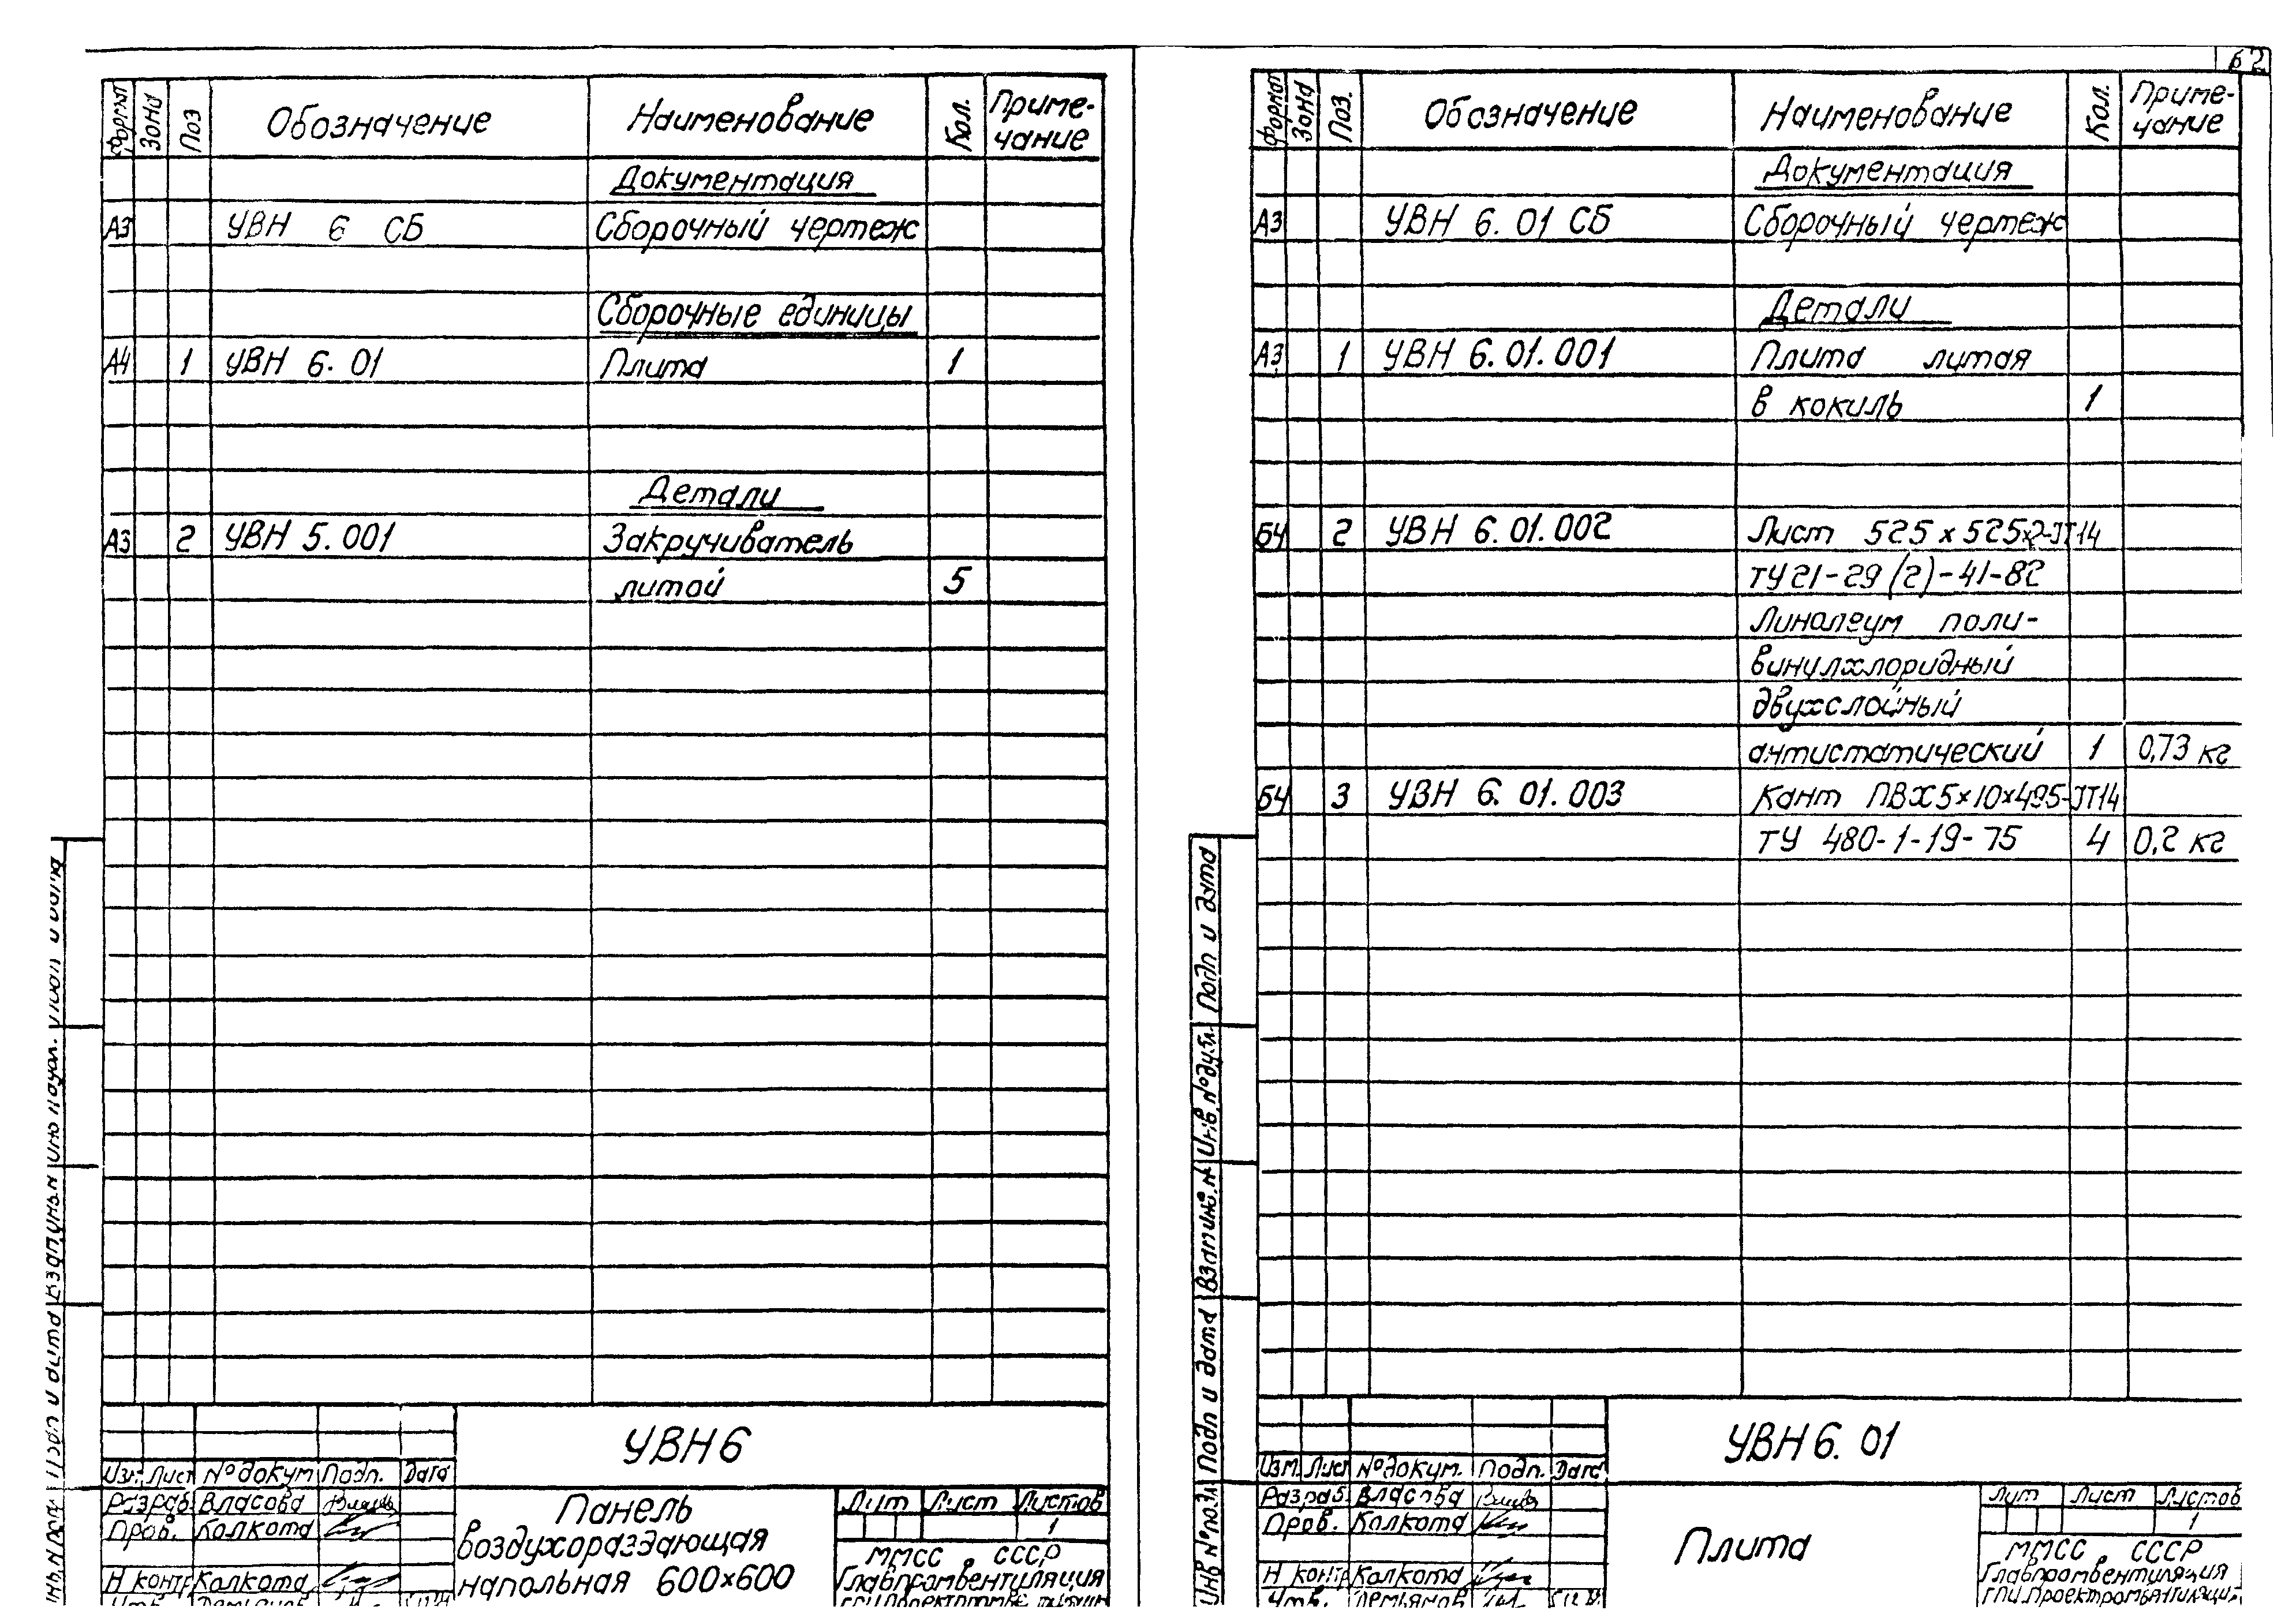 62
Формат Зона Поз Обозначение Наименование Кол. Приме-
чание
Документация
А3 УВН 6 СБ Сборочный чертеж
Сборочные единицы
А4 1 УВН 6.01 Плита 1
Детали
А3 2 УВН 5.001 Закручиватель
литой 5
УВН6
Изм. Лист № докум Подп. Дата
Разраб. Власова
Пров. Колкота
Н контр Колкота
Утв.
Панель
воздухораздающая
напольная 600×600
Лит Лист Листов
1
ММСС СССР
Главпромвентиляция
Формат Зона Поз. Обозначение Наименование Кол. Приме-
чание
Документация
А3 УВН 6.01 СБ Сборочный чертеж
Детали
А3 1 УВН 6.01.001 Плита литая
в кокиль 1
БЧ 2 УВН 6.01.002 Лист 525×525×2-IT14
ТУ21-29(2)-41-82
Линолеум поли-
винилхлоридный
двухслойный
антистатический 1 0,73 кг
БЧ 3 УВН 6.01.003 Кант ПВХ5×10×495-IT14
ТУ 480-1-19-75 4 0,2 кг
Подп и дата
Инв. № дубл.
Взам инв. №
Подп и дата
Инв № подл
УВН6.01
Изм. Лист № докум. Подп. Дата
Разраб. Власова
Пров. Колкота
Н контр Колкота
Утв. Демьянов
Плита
Лит Лист Листов
1
ММСС СССР
Главпромвентиляция
ГПИ Проектпромвентиляция